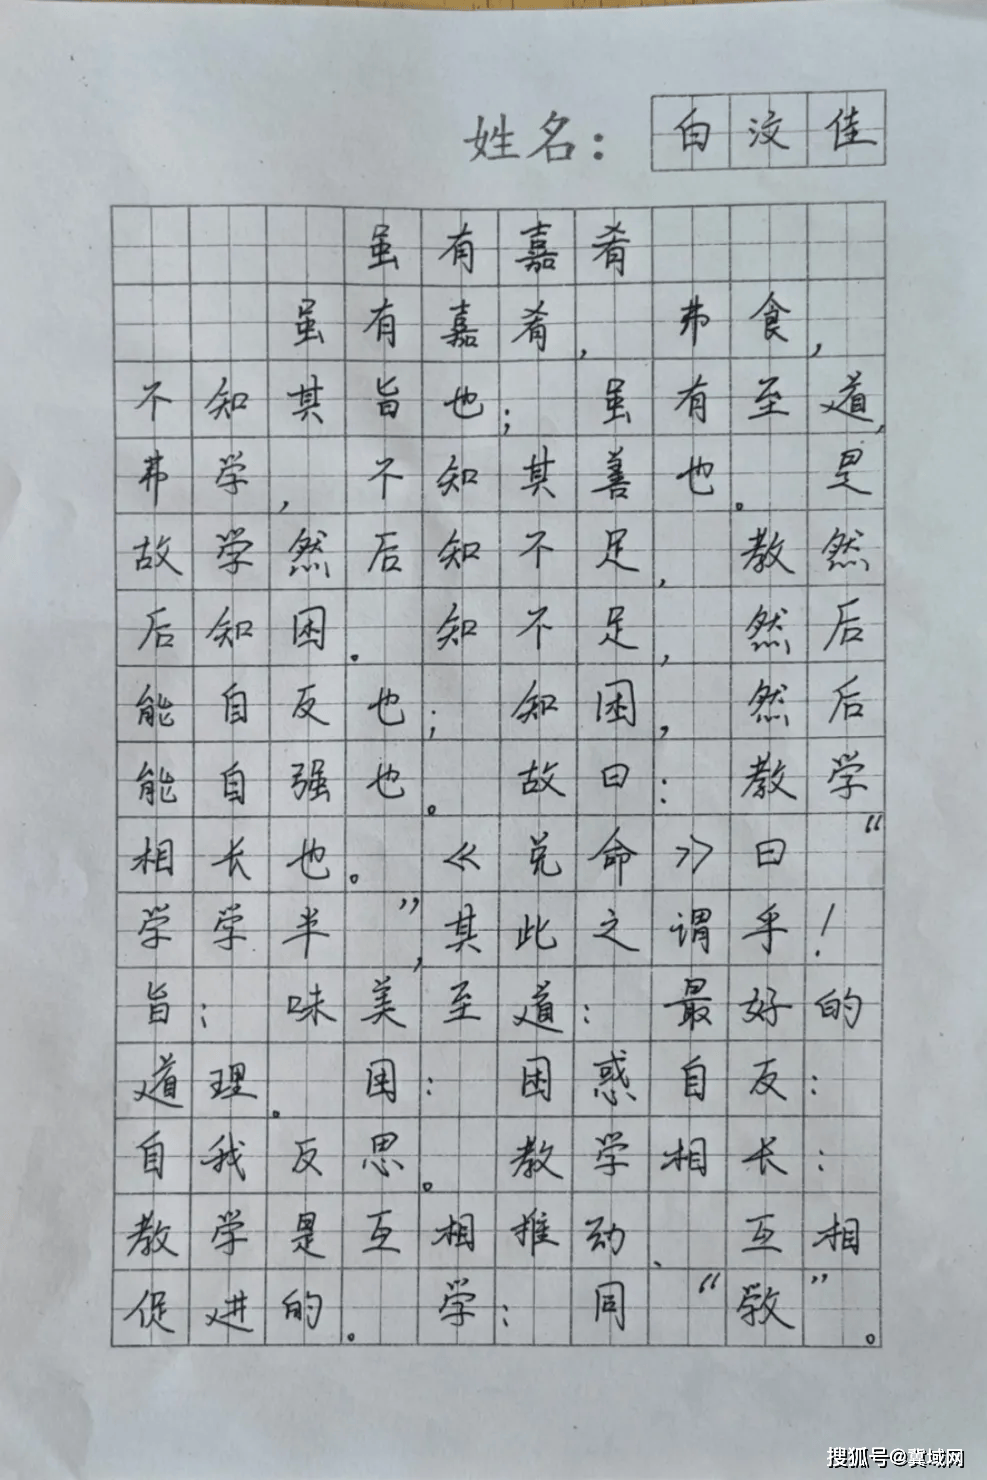 姓名：白汶佳
虽有嘉肴
虽有嘉肴，弗食，
不知其旨也；虽有至道，
弗学，不知其善也。是
故学然后知不足，教然
后知困。知不足，然后
能自反也；知困，然后
能自强也。故曰：教学
相长也。《兑命》曰“
学学半”，其此之谓乎！
旨：味美至道：最好的
道理。困：困惑自反：
自我反思。教学相长：
教学是互相推动、互相
促进的。学：同“敩”。
搜狐号@冀域网